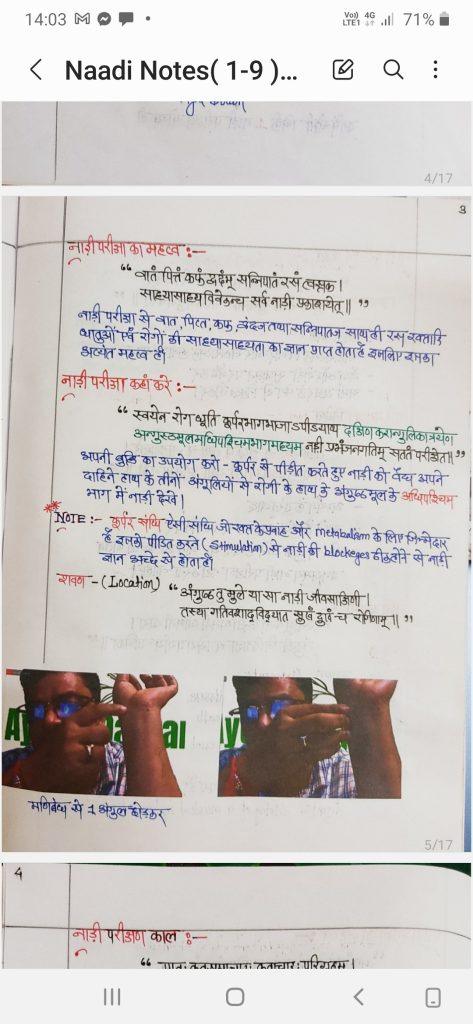 14:03
Vo)) 4G
LTE1
71%
Naadi Notes( 1-9 )...
4/17
3
नाड़ी परीक्षा का महत्व :-
" वातं पित्तं कफं द्वंद्वम् सन्निपातं रसं त्वसृक ।
साध्यासाध्य विवेकन्च सर्व नाड़ी प्रकाशयेत् ॥ "
नाड़ी परीक्षा से वात, पित्त, कफ, द्वंदज तथा सन्निपातज साथ ही रस रक्तादि
धातुओं एवं रोगों की साध्यासाध्यता का ज्ञान प्राप्त होता है इसलिए इसका
अत्यंत महत्व है।
नाड़ी परीक्षा कहाँ करे :-
" स्वयेन रोग भूति कूर्परभागभाजाऽपीडयाथ दक्षिण करान्गुलिकात्रयेण
अन्गुस्ठमूलमधिपश्चिमभागमध्यम नाड़ी प्रभंजनगतिम् सततं परीक्षेत॥ "
अपनी बुद्धि का उपयोग करो - कूर्पर से पीड़ीत करते हुए नाड़ी को वैद्य अपने
दाहिने हाथ के तीनों अंगुलियों से रोगी के हाथ के अंगुष्ठ मूल के अधिपश्चिम
भाग में नाड़ी देखे।
NOTE :- कूर्पर संधि ऐसी संधि जो रक्त के प्रवाह और metabalism के लिए जिम्मेदार
है इसको पीडित करने (stimulation) से नाड़ी की blockeges ठीक होने से नाड़ी
ज्ञान अच्छे से होता है।
- (Location) " अंगुष्ठ तु मूले या सा नाड़ी जीवसाक्षिणी ।
तस्या गतिवशाद्विद्यात सुखं दुखं च रोगिणाम् ॥ "
मणिबंध से 1 अंगुल छोड़कर
5/17
4
नाड़ी परीक्षण काल :-